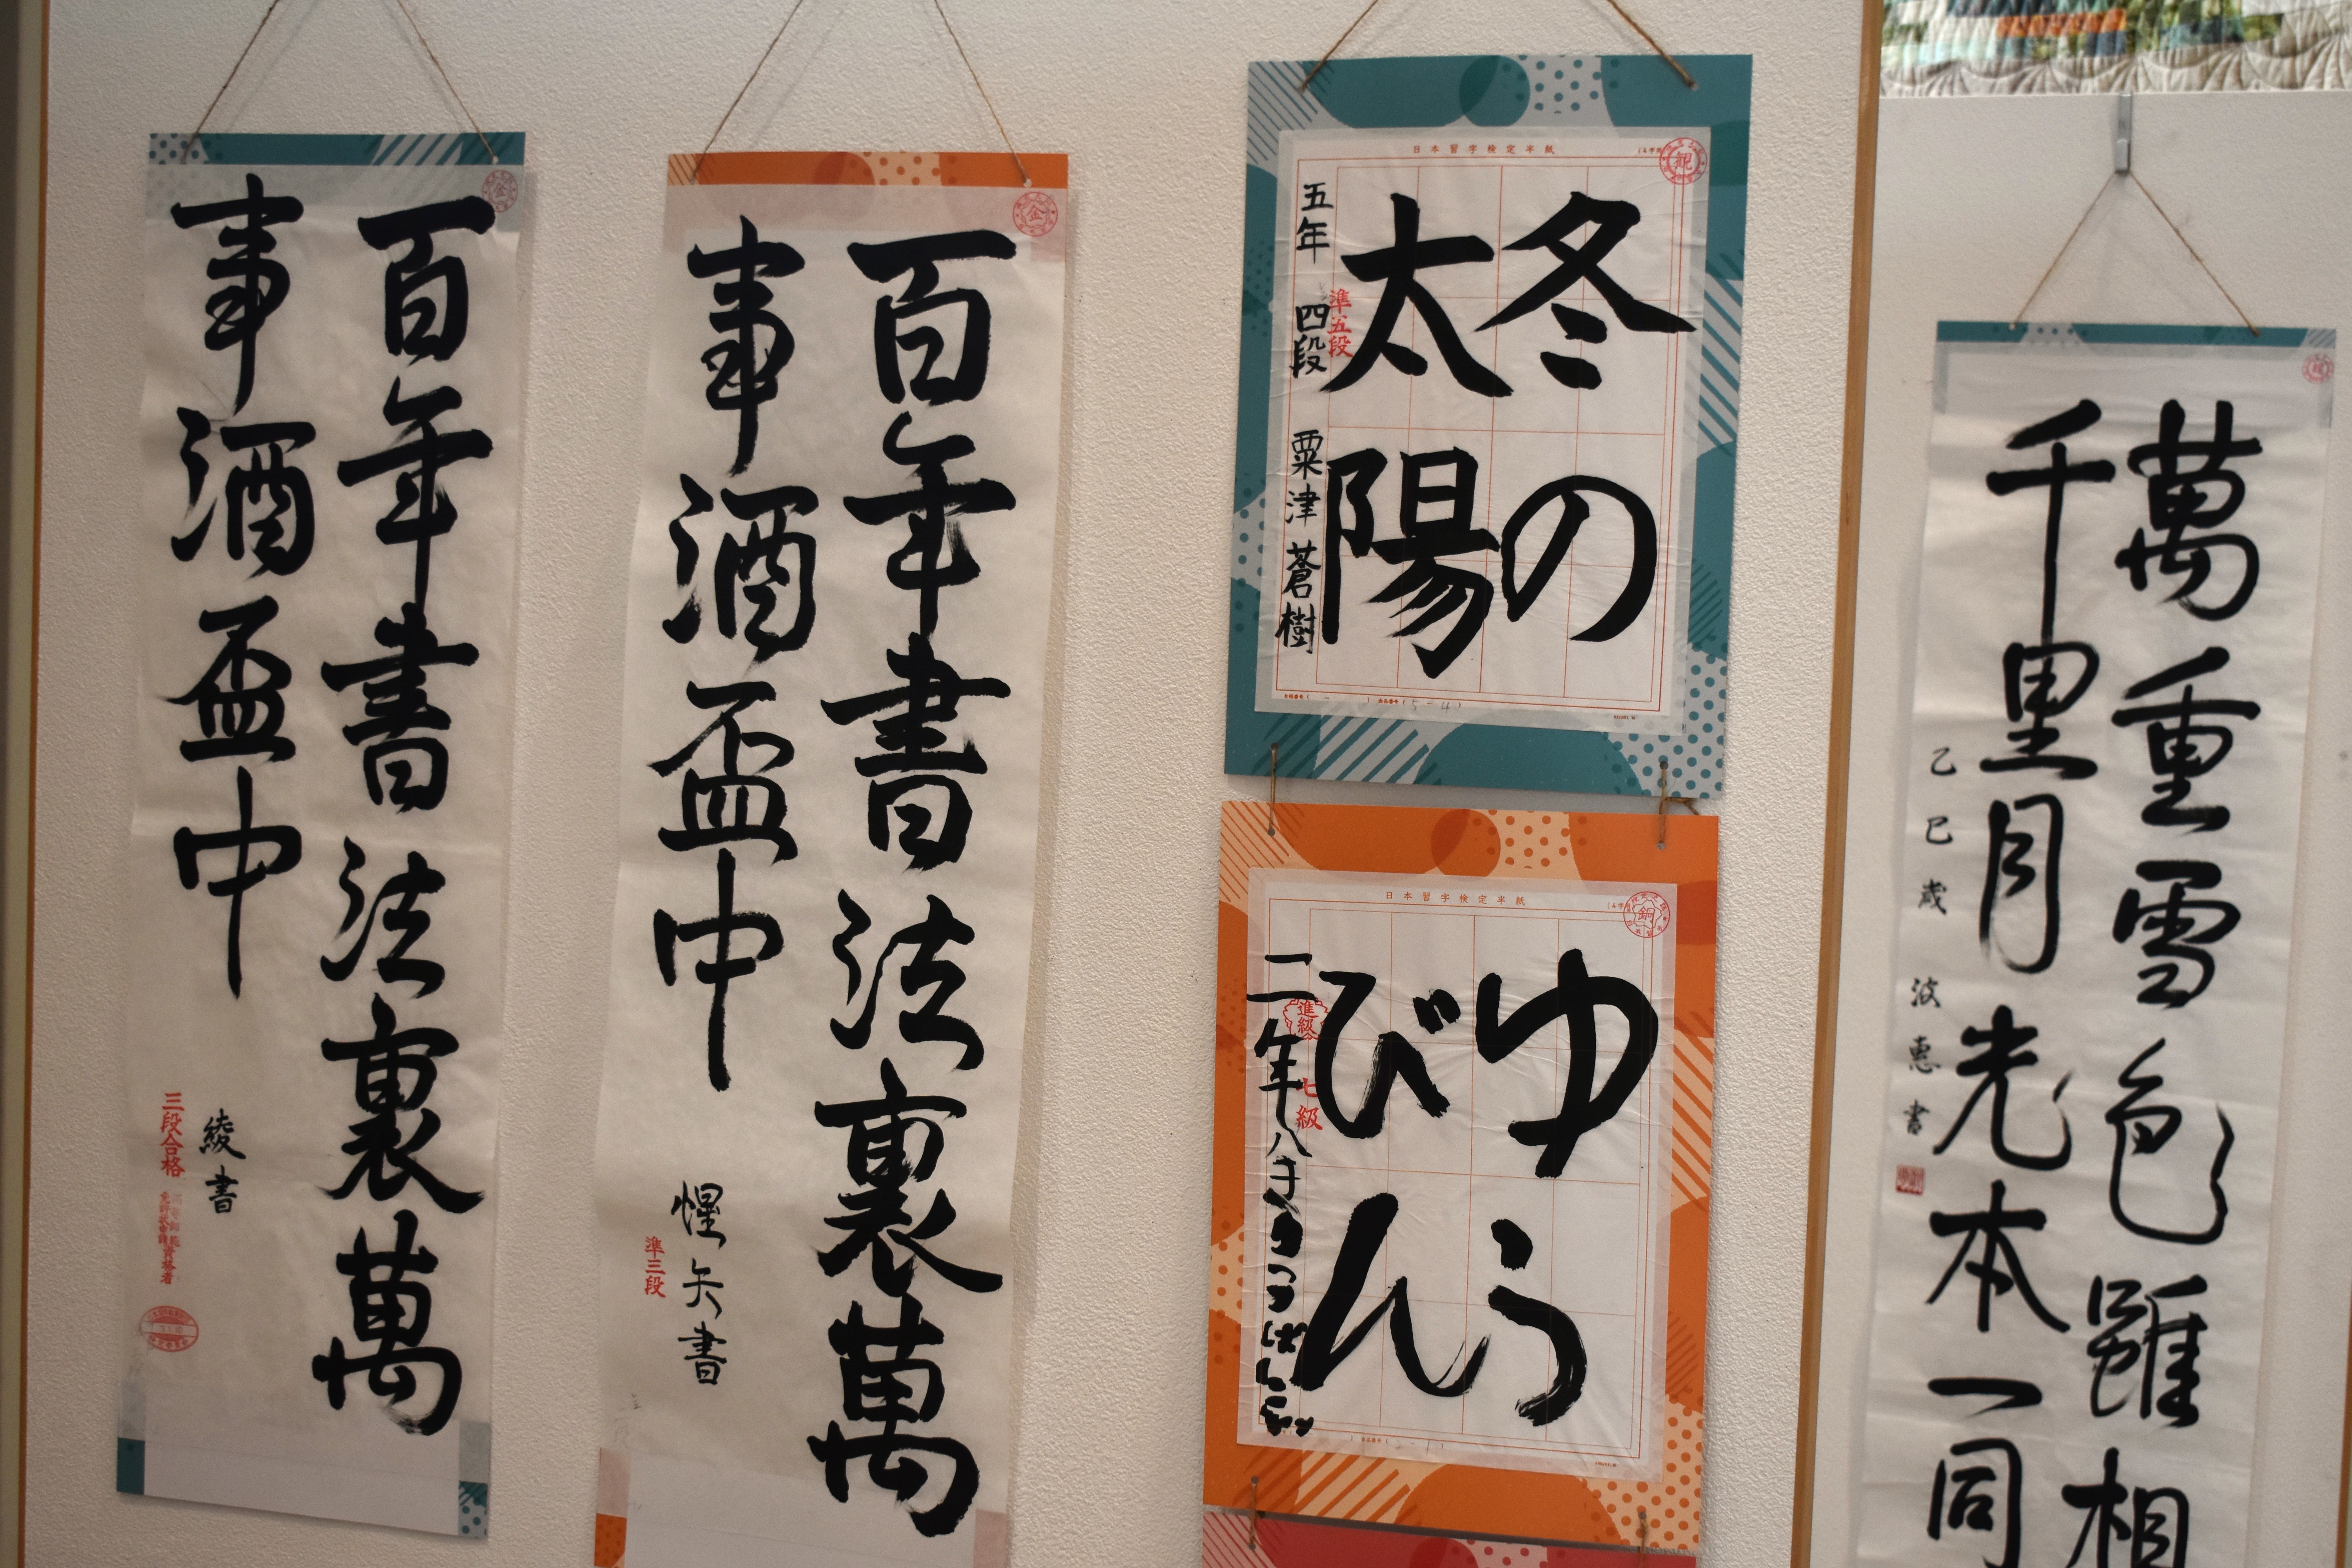 百年書法裏萬
事酒盃中
綾書
三段合格
金
百年書法裏萬
事酒盃中
惺矢書
準三段
金
日本習字検定半紙
観
冬の
太陽
五年 四段 粟津蒼樹
準五段
日本習字検定半紙
銅
ゆう
びん
二年
進級
七級
萬重雪色雖相
千里月光本一同
乙巳歳 波恵書